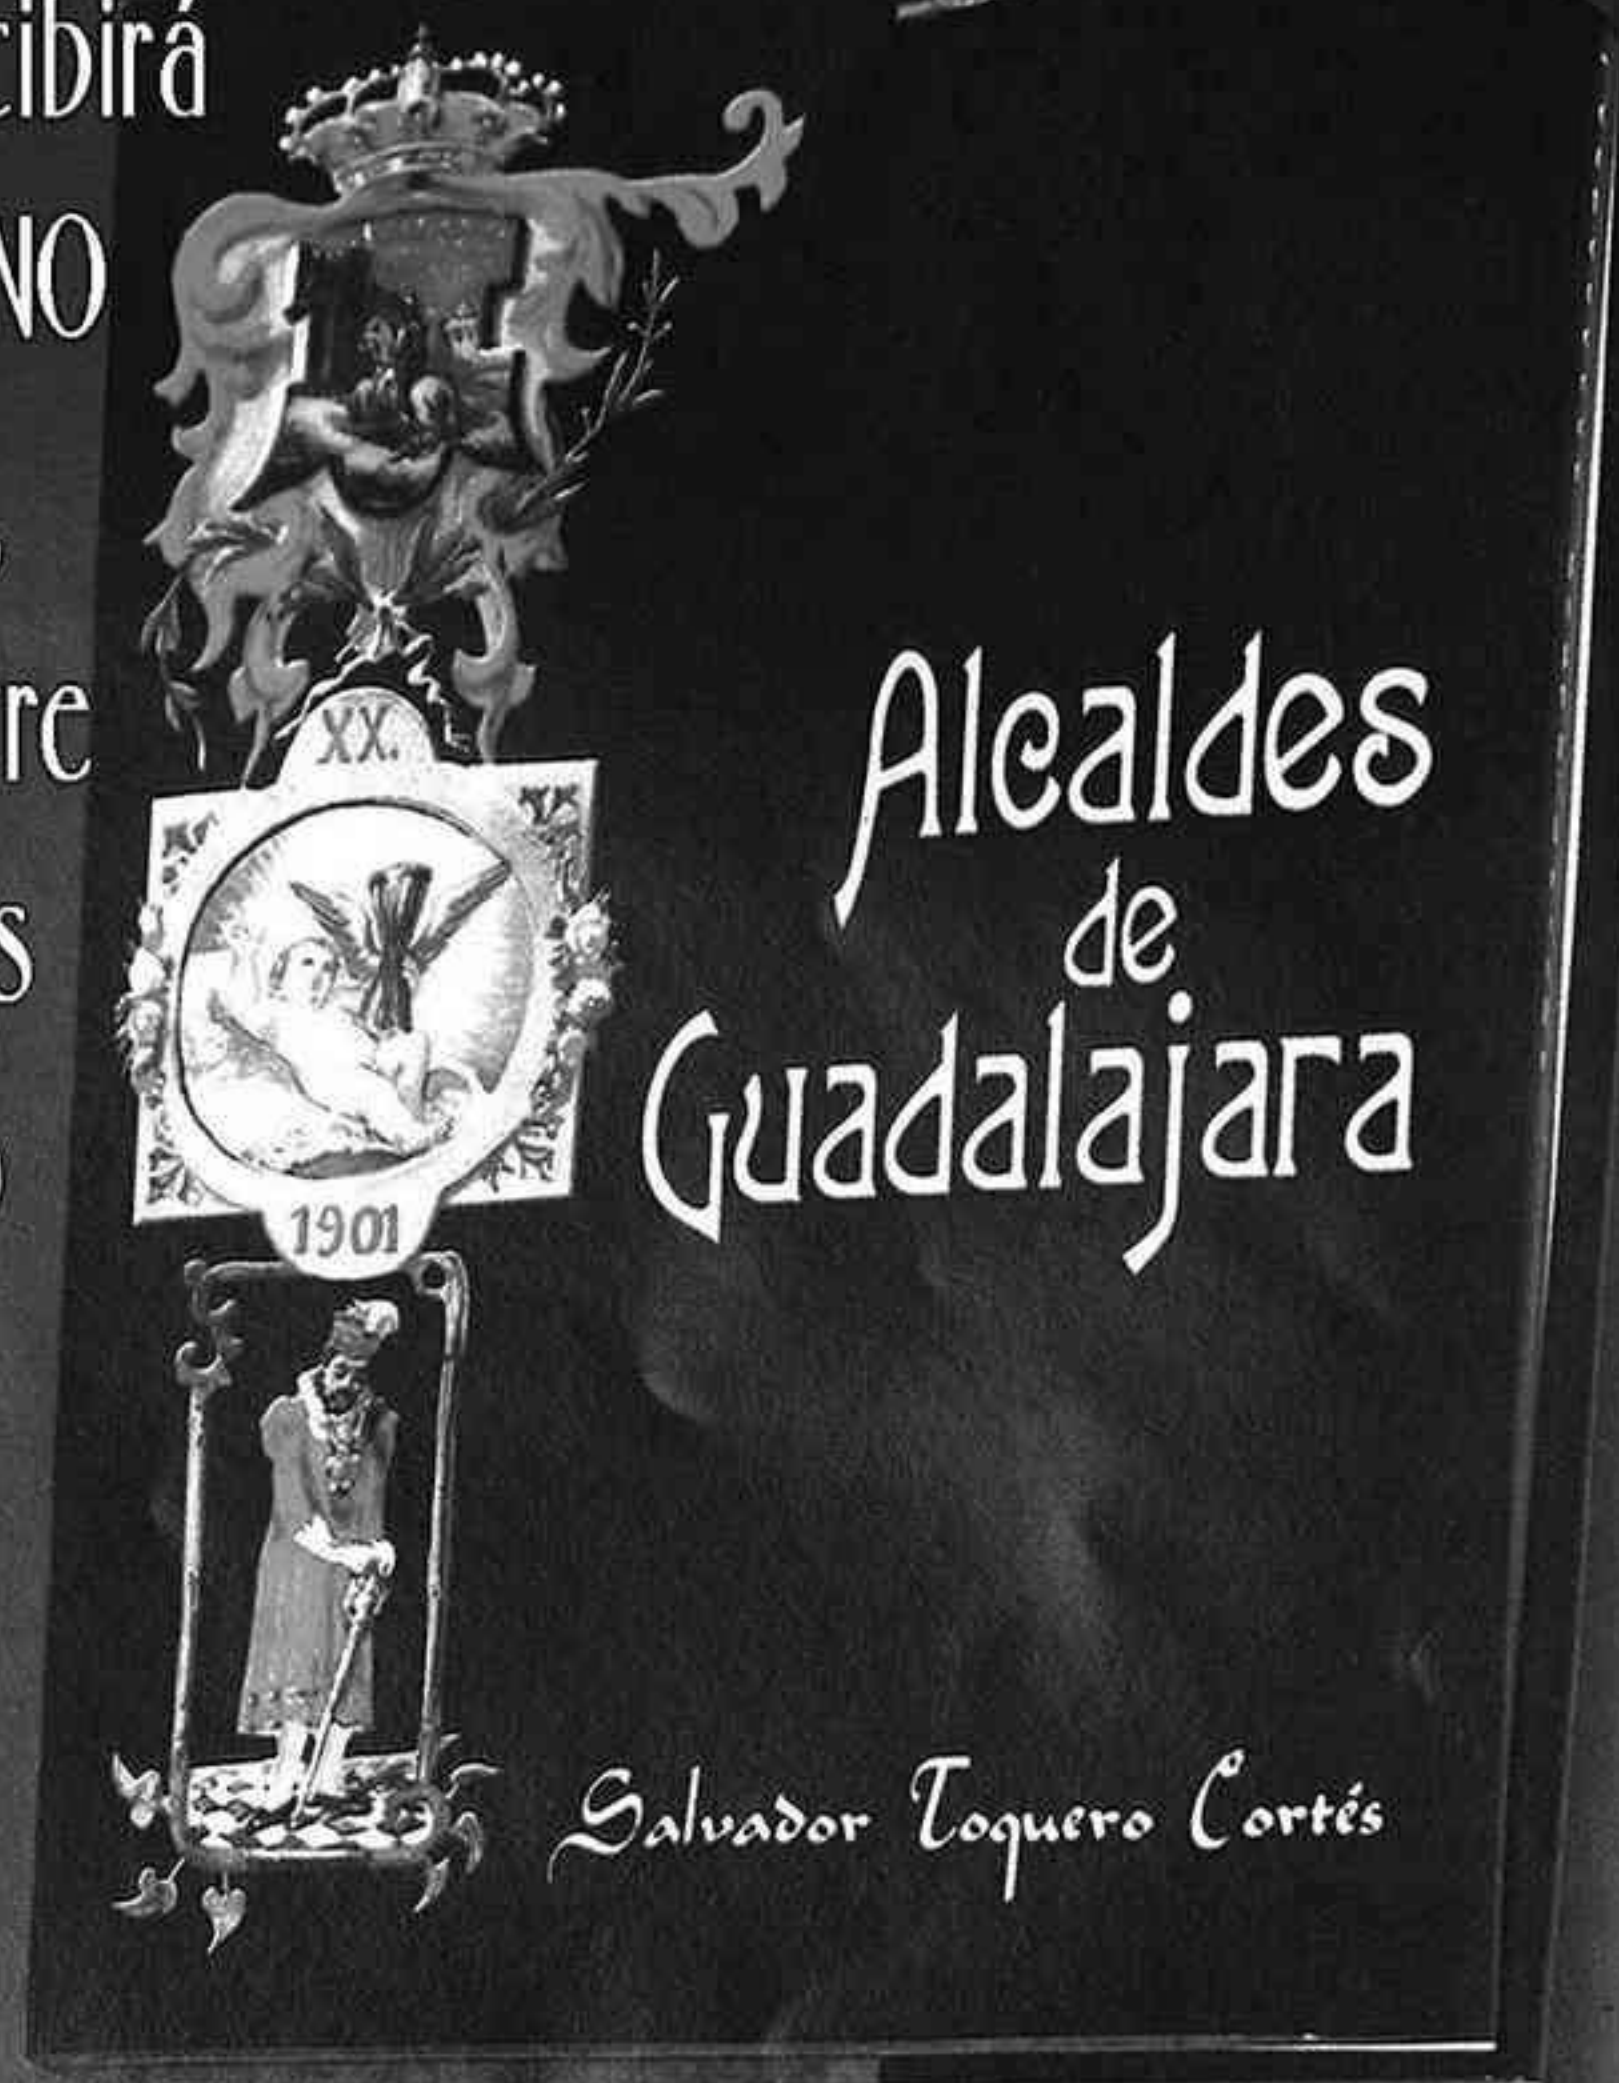 NO
XX.
1901
Alcaldes
de
Guadalajara
Salvador Toquero Cortés